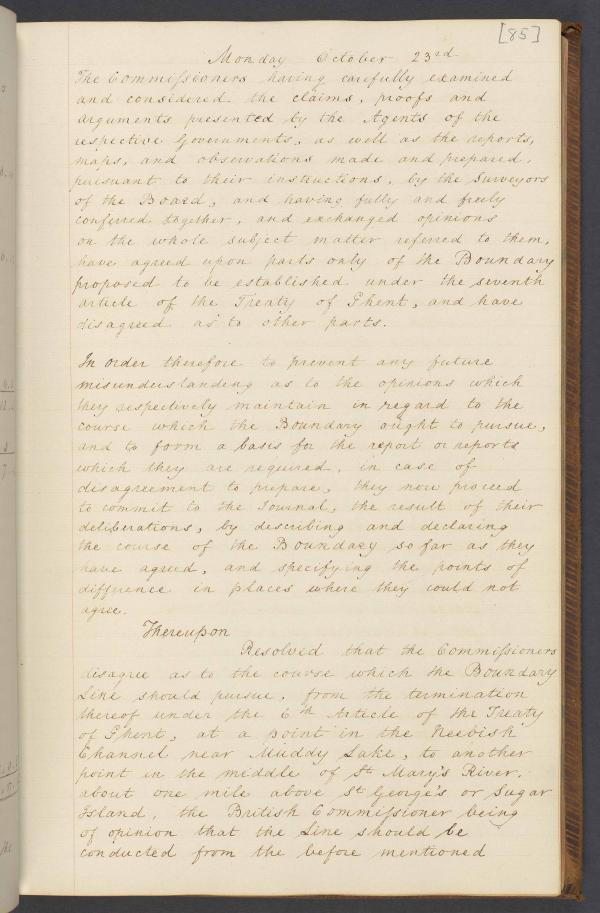 [85]
Monday October 23rd
The Commissioners having carefully examined
and considered the claims, proofs and
arguments presented by the Agents of the
respective Governments, as well as the reports,
maps, and observations made and prepared,
pursuant to their instructions, by the Surveyors
of the Board, and having fully and freely
conferred together, and exchanged opinions
on the whole subject matter referred to them,
have agreed upon parts only of the Boundary
proposed to be established under the seventh
article of the Treaty of Ghent, and have
disagreed as to other parts.
In order therefore to prevent any future
misunderstanding as to the opinions which
they respectively maintain in regard to the
course which the Boundary ought to pursue,
and to form a basis for the report or reports
which they are required, in case of
disagreement to prepare, they now proceed
to commit to the Journal, the result of their
deliberations, by describing and declaring
the course of the Boundary so far as they
have agreed, and specifying the points of
difference in places where they could not
agree.
Thereupon
Resolved that the Commissioners
disagree as to the course which the Boundary
Line should pursue, from the termination
thereof under the 6th Article of the Treaty
of Ghent, at a point in the Neebish
Channel near Muddy Lake, to another
point in the middle of St Mary's River,
about one mile above St George's or Sugar
Island, the British Commissioner being
of opinion that the Line should be
conducted from the before mentioned